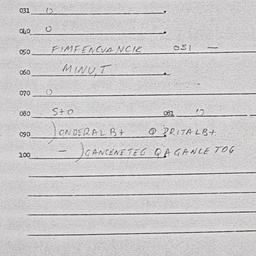 031 0
040 0
050 FIMFENCVANCIE 031 —
060 MINU,T
070 0
080 S+O 081
090 )ONDERALB+ @ PRITALB+
100 — )GANCENETEG QAGANLE TOG